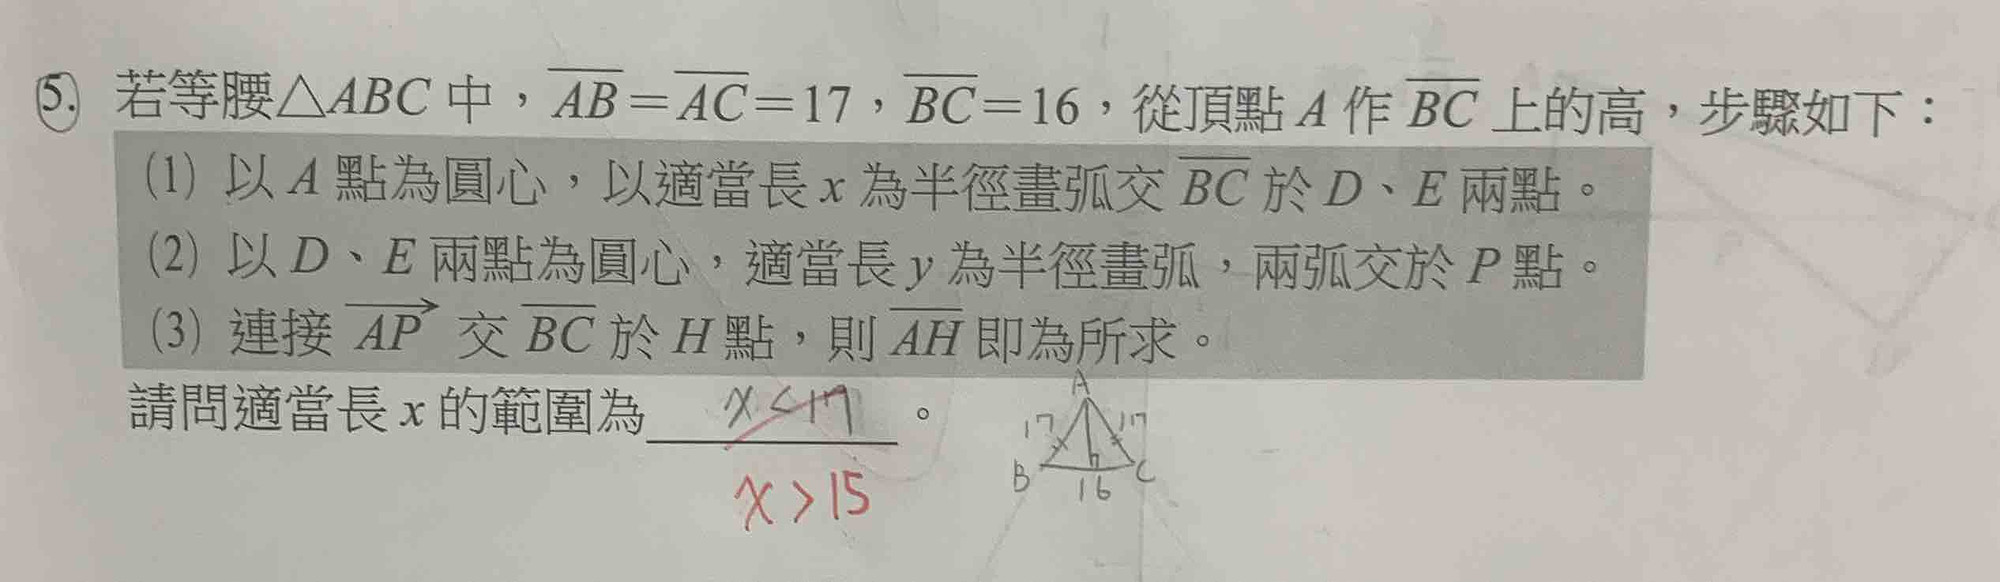 5. 若等腰△ABC 中，AB＝AC＝17，BC＝16，從頂點 A 作 BC 上的高，步驟如下：
(1) 以 A 點為圓心，以適當長 x 為半徑畫弧交 BC 於 D、E 兩點。
(2) 以 D、E 兩點為圓心，適當長 y 為半徑畫弧，兩弧交於 P 點。
(3) 連接 AP 交 BC 於 H 點，則 AH 即為所求。
請問適當長 x 的範圍為 x<17 。
x>15
A
17 17
B C
16